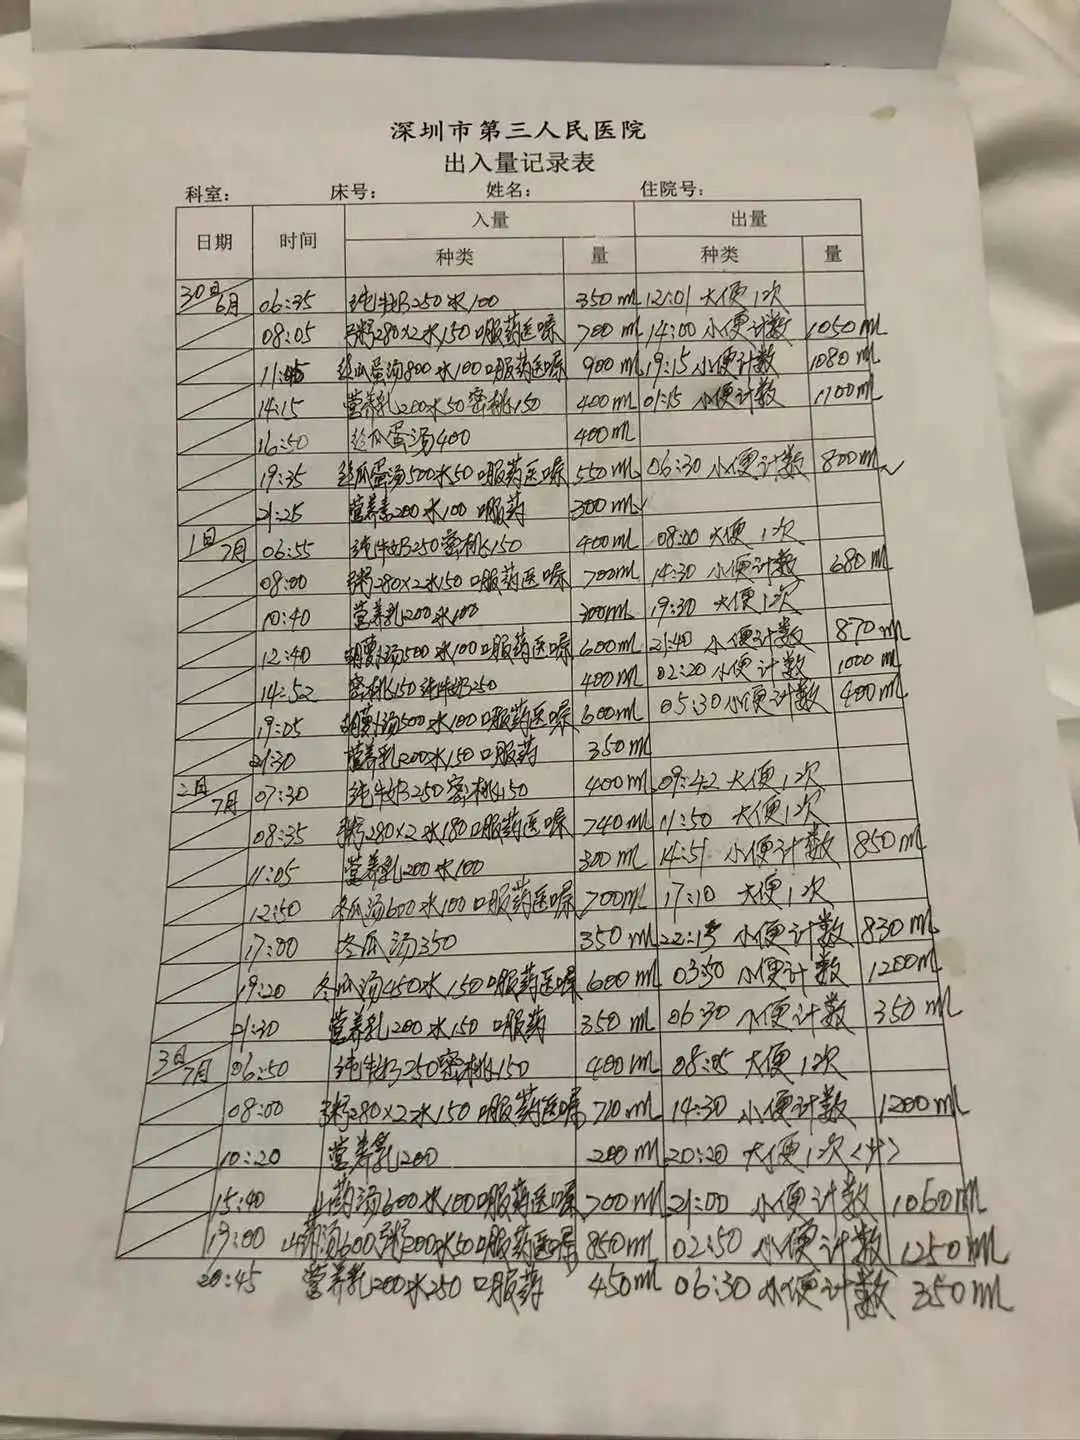 深圳市第三人民医院
出入量记录表
科室： 床号： 姓名： 住院号：
日期 时间 入量 出量
种类 量 种类 量
30日/6月 06:35 纯牛奶250水100 350ml 12:01 大便1次
08:05 粥280×2水150口服药医嘱 700ml 14:00 小便计数 1050ml
11:45 丝瓜蛋汤800水100口服药医嘱 900ml 19:15 小便计数 1080ml
14:15 营养乳200水50密桃150 400ml 01:15 小便计数 1100ml
16:50 丝瓜蛋汤400 400ml
19:35 丝瓜蛋汤500水50口服药医嘱 550ml 06:30 小便计数 800ml
21:25 营养素200水100 口服药 300ml
1日/7月 06:55 纯牛奶250密桃150 400ml 08:00 大便1次
08:00 粥280×2水150口服药医嘱 700ml 14:30 小便计数 680ml
10:40 营养乳200水100 300ml 19:30 大便1次
12:40 胡萝卜汤500水100口服药医嘱 600ml 21:40 小便计数 870ml
14:52 密桃150纯牛奶250 400ml 02:20 小便计数 1000ml
19:05 胡萝卜汤500水100口服药医嘱 600ml 05:30 小便计数 400ml
21:30 营养乳200水150口服药 350ml
2日/7月 07:30 纯牛奶250密桃150 400ml 09:42 大便1次
08:35 粥280×2水180口服药医嘱 740ml 11:50 大便1次
11:05 营养乳200水100 300ml 14:51 小便计数 850ml
12:50 冬瓜汤600水100口服药医嘱 700ml 17:10 大便1次
17:00 冬瓜汤350 350ml 22:15 小便计数 830ml
19:20 冬瓜汤450水150口服药医嘱 600ml 03:50 小便计数 1200ml
21:30 营养乳200水150 口服药 350ml 06:30 小便计数 350ml
3日/7月 06:50 纯牛奶250密桃150 400ml 08:05 大便1次
08:00 粥280×2水150口服药医嘱 710ml 14:30 小便计数 1200ml
10:20 营养乳200 200ml 20:20 大便1次（少）
15:40 山药汤600水100口服药医嘱 700ml 21:00 小便计数 1060ml
19:00 山药汤600粥200水50口服药医嘱 850ml 02:50 小便计数 1250ml
20:45 营养乳200水250口服药 450ml 06:30 小便计数 350ml